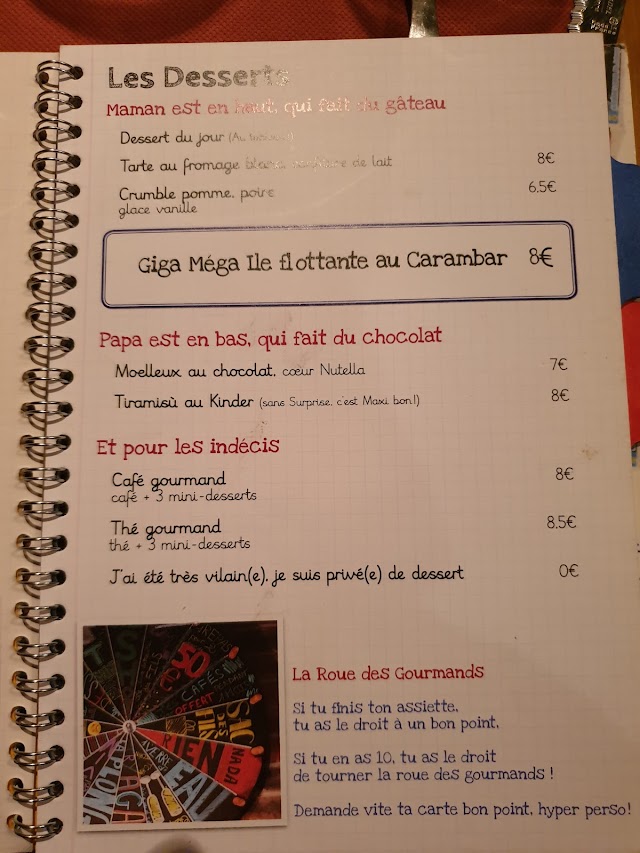 Les Desserts
Maman est en haut, qui fait du gâteau
Dessert du jour (Au tableau)
Tarte au fromage blanc, confiture de lait 8€
Crumble pomme, poire 6.5€
glace vanille
Giga Méga Ile flottante au Carambar 8€
Papa est en bas, qui fait du chocolat
Moelleux au chocolat, cœur Nutella 7€
Tiramisù au Kinder (sans Surprise, c'est Maxi bon!) 8€
Et pour les indécis
Café gourmand 8€
café + 3 mini-desserts
Thé gourmand 8.5€
thé + 3 mini-desserts
J'ai été très vilain(e), je suis privé(e) de dessert 0€
50
CAFÉS
OFFERT
RIEN
NADA
EAU
PLONG
La Roue des Gourmands
Si tu finis ton assiette,
tu as le droit à un bon point,
Si tu en as 10, tu as le droit
de tourner la roue des gourmands !
Demande vite ta carte bon point, hyper perso!